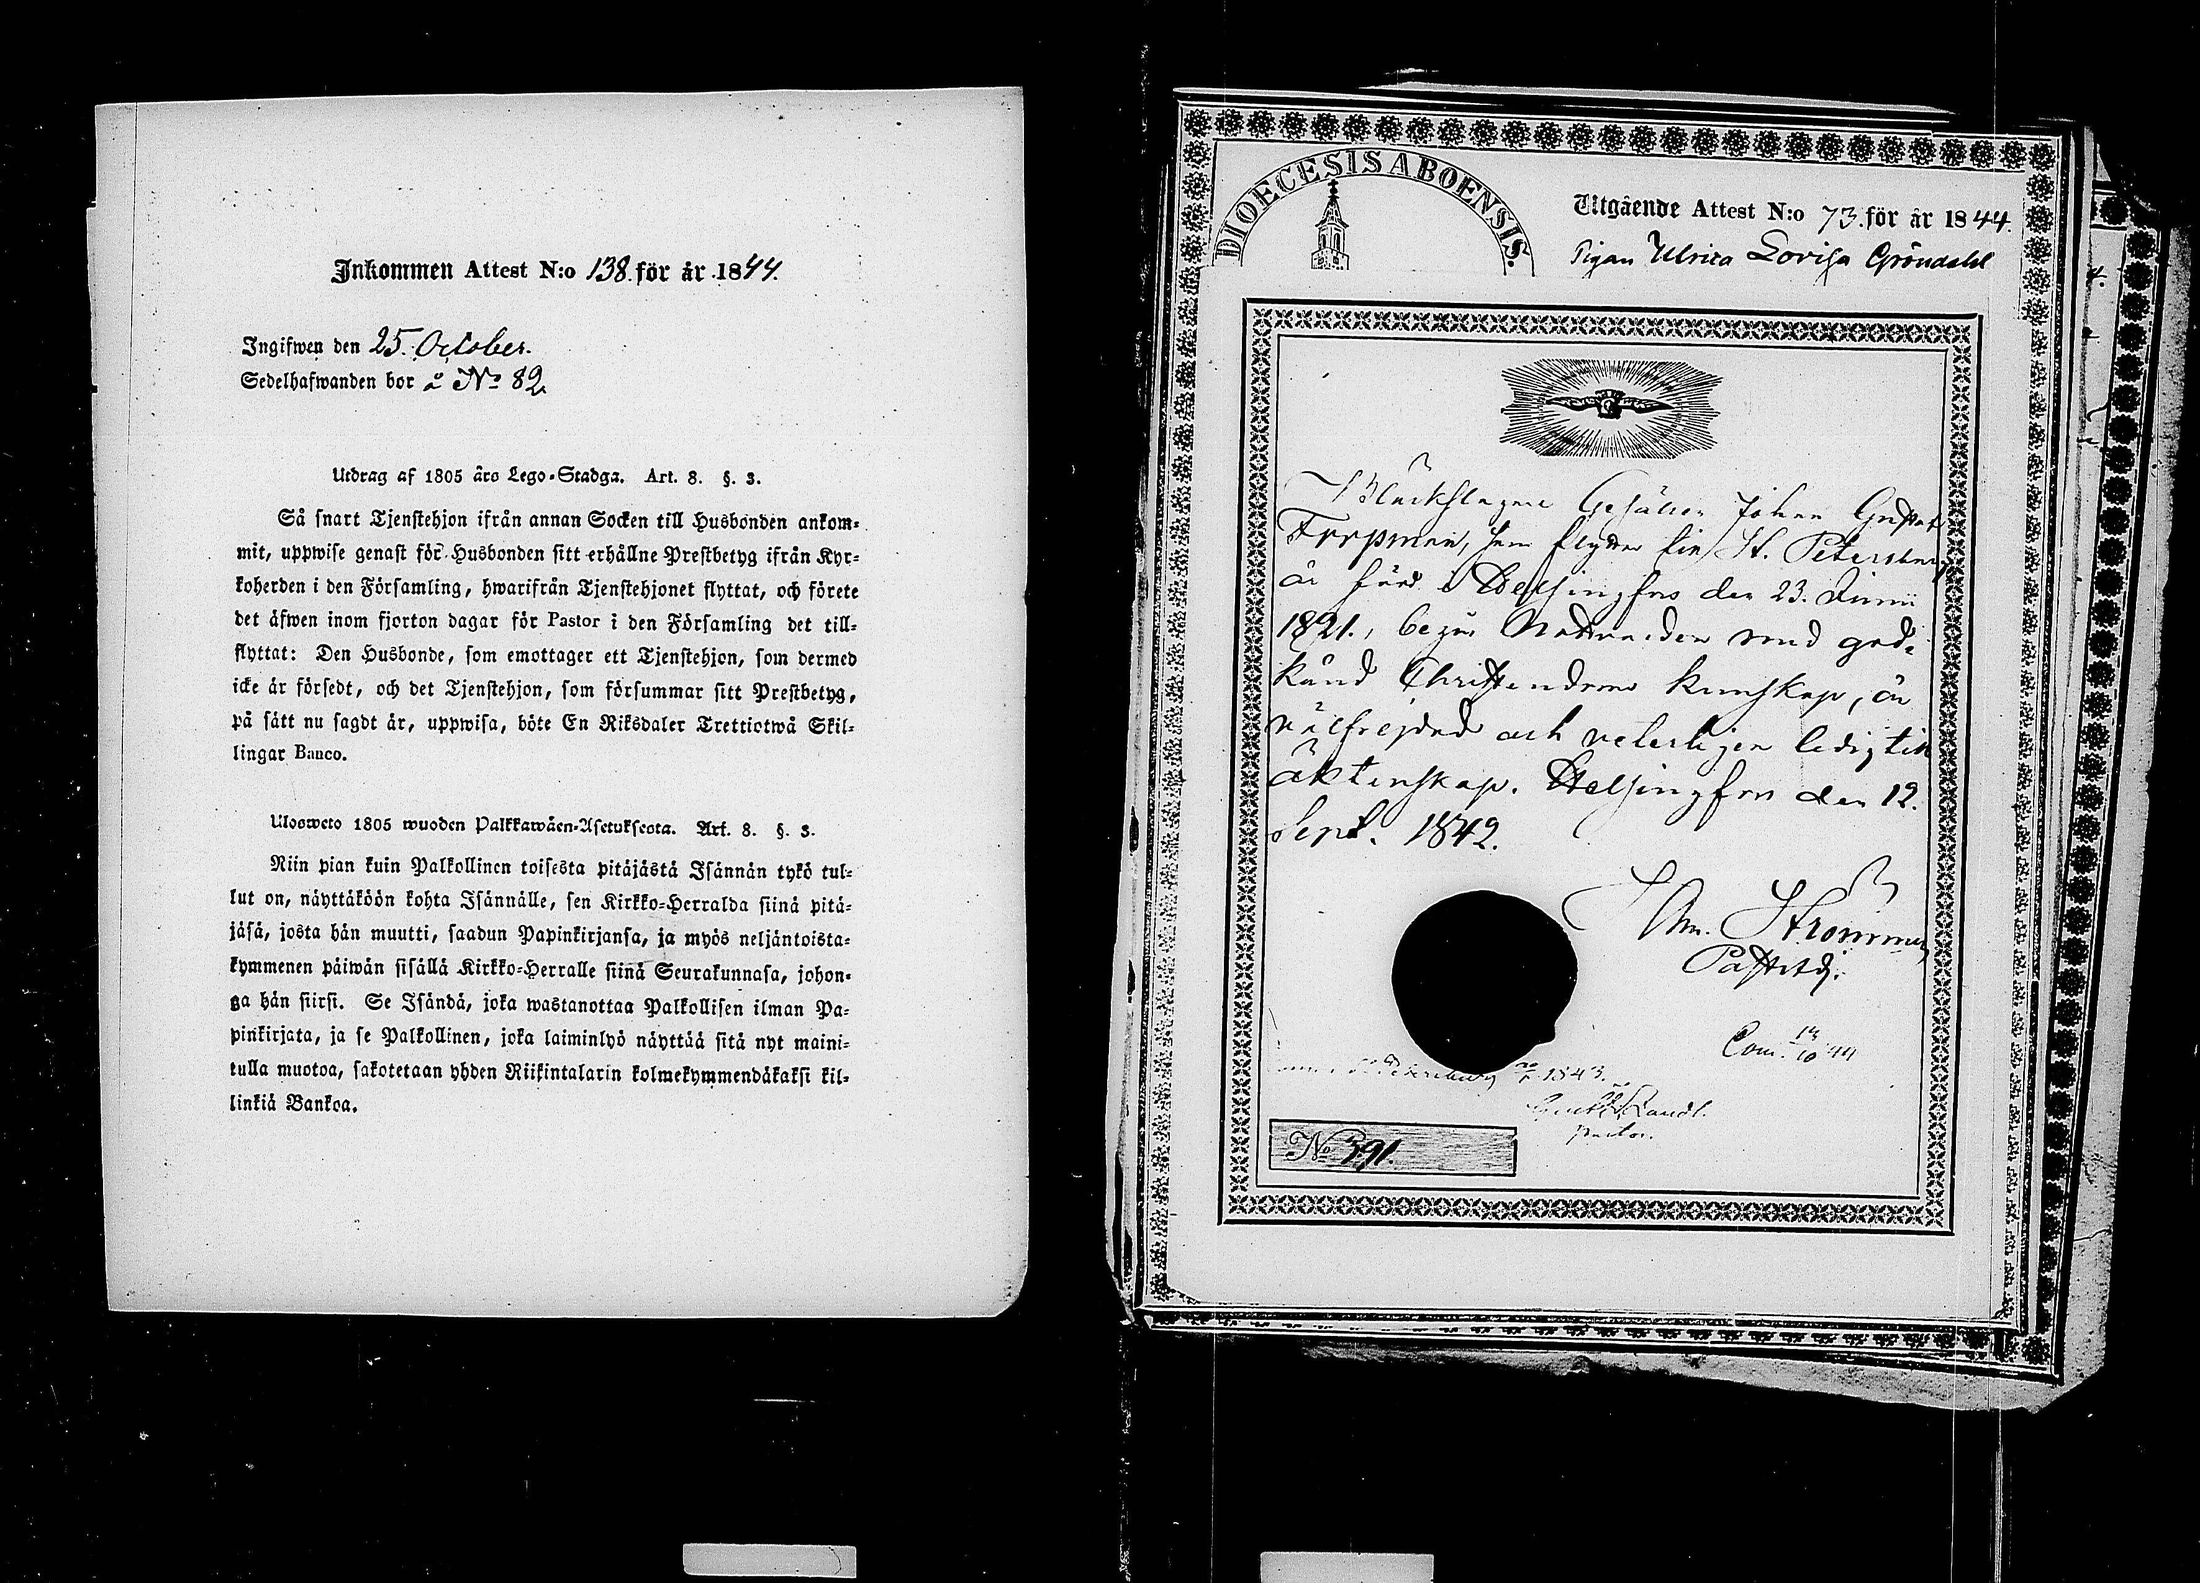 Inkommen Attest N:o 138. för år 1844.
Ingifwen den 25. October.
Sedelhafwanden bor å No 82
Utdrag af 1805 års Lego-Stadga. Art. 8. §. 3.
Så snart Tjenstehjon ifrån annan Socken till Husbonden ankom-
mit, uppwise genast för Husbonden sitt erhållne Prestbetyg ifrån Kyr-
koherden i den Församling, hwarifrån Tjenstehjonet flyttat, och förete
det äfwen inom fjorton dagar för Pastor i den Församling det till-
flyttat: Den Husbonde, som emottager ett Tjenstehjon, som dermed
icke är försedt, och det Tjenstehjon, som försummar sitt Prestbetyg,
på sätt nu sagdt är, uppwisa, böte En Riksdaler Trettiotwå Skil-
lingar Banco.
Ulosweto 1805 wuoden Palkkawäen-Asetuksesta. Art. 8. §. 3.
Niin pian kuin Palkollinen toisesta pitäjästä Isännän tykö tul-
lut on, näyttäköön kohta Isännälle, sen Kirkko-Herralda siinä pitä-
jäsä, josta hän muutti, saadun Papinkirjansa, ja myös neljäntoista-
kymmenen päiwän sisällä Kirkko-Herralle siinä Seurakunnasa, johon-
ga hän siirsi. Se Isändä, joka wastanottaa Palkollisen ilman Pa-
pinkirjata, ja se Palkollinen, joka laiminlyö näyttää sitä nyt maini-
tulla muotoa, sakotetaan yhden Riikintalarin kolmekymmendäkaksi kil-
linkiä Bankoa.
DIOECESIS ABOENSIS.
Utgående Attest N:o 73. för år 1844.
Pigan Ulrica Lovisa Gröndahl
Bläckslagare Gesällen Johan Gustaf
som flyttar till St. Petersburg,
är född i Helsingfors den 23. Junii
1821., begår Nattvarden med god-
känd Christendoms kunskap, är
välfrejdad och veterligen ledig till
äktenskap. Helsingfors den 12.
Sept. 1842.
Strömmer
Com. 14/10 44
St Petersburg 1843.
Pastor.
No 391.